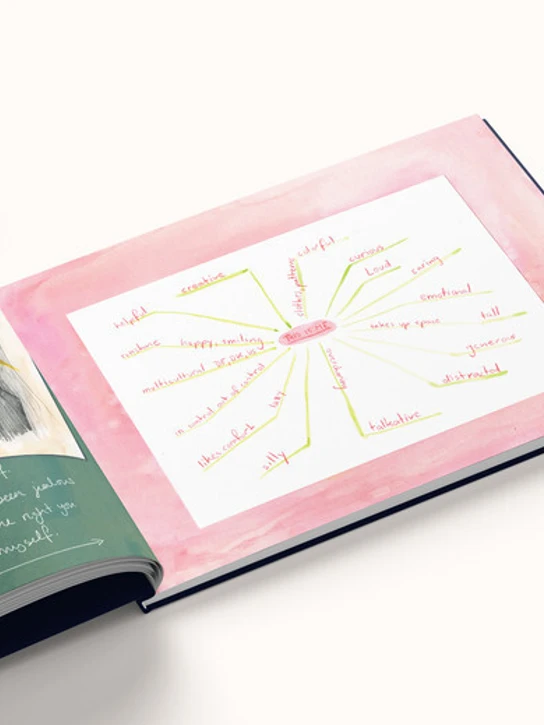 colorful
clothes, patterns
curious
Loud
caring
emotional
takes up space
tall
generous
distracted
talkative
silly
lazy
likes comfort
in control out of control
multicultural
happy, smiling
sunshine
helpful
creative
THIS IS ME
been jealous
right you
myself.